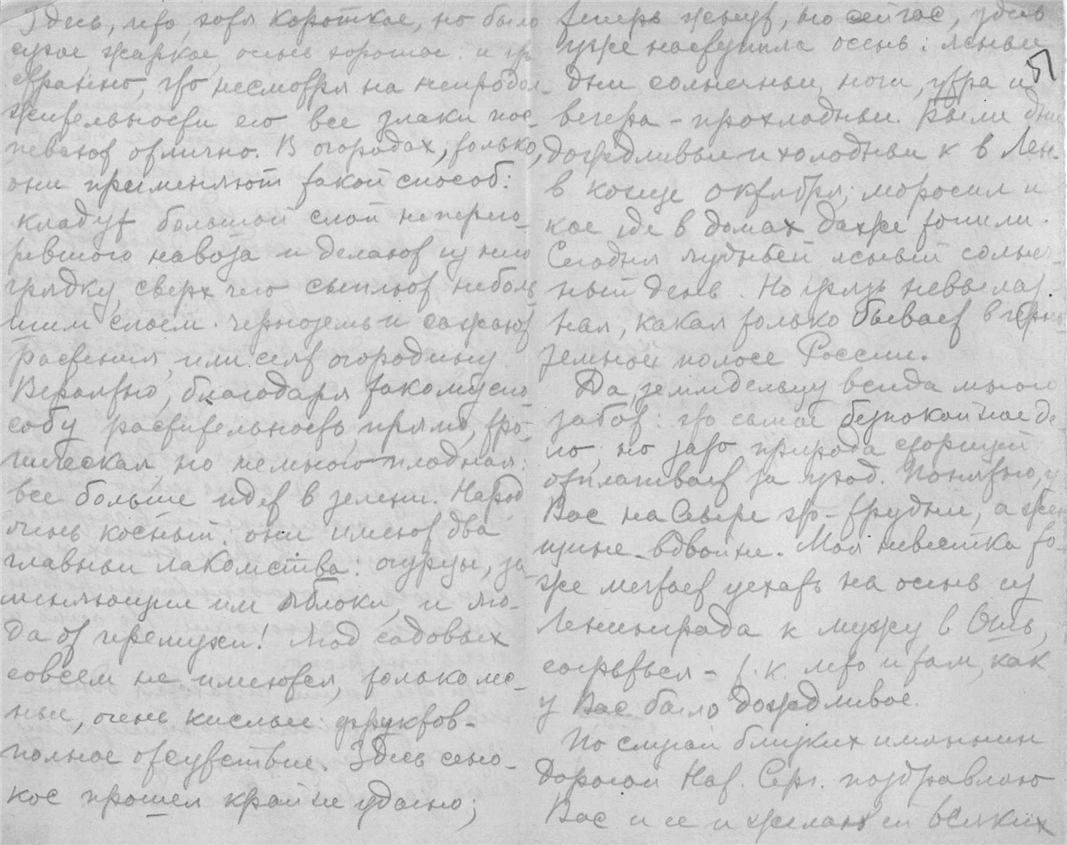 Здесь, лето, хотя короткое, но было
сухое жаркое, очень хорошее. и
странно, что несмотря на непродол-
жительность его все злаки пос-
певают отлично. В огородах, только,
они применяют такой способ:
кладут большой слой неперего-
ревшего навоза и делают из него
грядку, сверх чего сыплют неболь
шим слоем. чернозем и сажают
растения, или сеят огородину.
Вероятно, благодаря такому спо
собу растительность, прямо, тро-
пическая, но немного плодная:
все больше идет в зелень. Народ
очень косный: они имеют два
главных лакомства: огурцы, за-
меняющия им яблоки, и яго-
да от черемухи! Ягод садовых
совсем не имеются, только лес-
ныи, очень кислые: фруктов-
полное отсутствие. Здесь сено-
кос прошел крайне удачно;
теперь жнут, но сейчас, здесь
уже наступила осень: ясныи
51
дни солнечныи, ночи, утра и
вечера - прохладныи. Были дни
дождливыи и холодныи к в Лен.
в конце октября; моросил и
кое где в домах даже топили.
Сегодня чудный ясный солнеч-
ный день. Но грязь невылаз-
ная, какая только бывает в черно
земной полосе России.
Да, земледельцу всегда много
забот: это самое безпокойное де
ло, но зато природа сторицей
отплачивает за труд. Понятно, у
Вас на Севере это - трудни, а жен
щине - вдвойне. Моя невестка то-
же мечтает уехать на осень из
Ленинграда к мужу в Ошь,
согреться - т. к. лето и там, как
у Вас было дождливое.
По случаи близких имянин
дорогой Нат. Серг. поздравляю
Вас и ее и желаю ей всяких